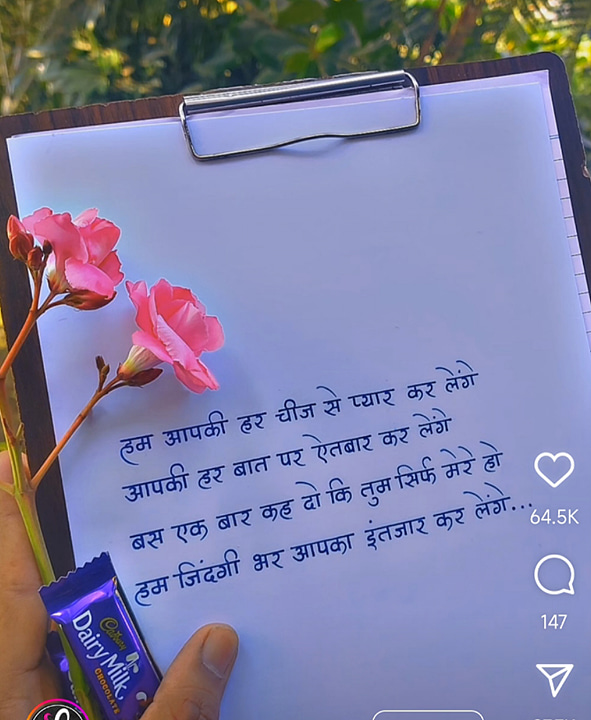 हम आपकी हर चीज से प्यार कर लेंगे
आपकी हर बात पर ऐतबार कर लेंगे
बस एक बार कह दो कि तुम सिर्फ मेरे हो
हम जिंदगी भर आपका इंतजार कर लेंगे...
64.5K
147
Cadbury
Dairy Milk
CHOCOLATE